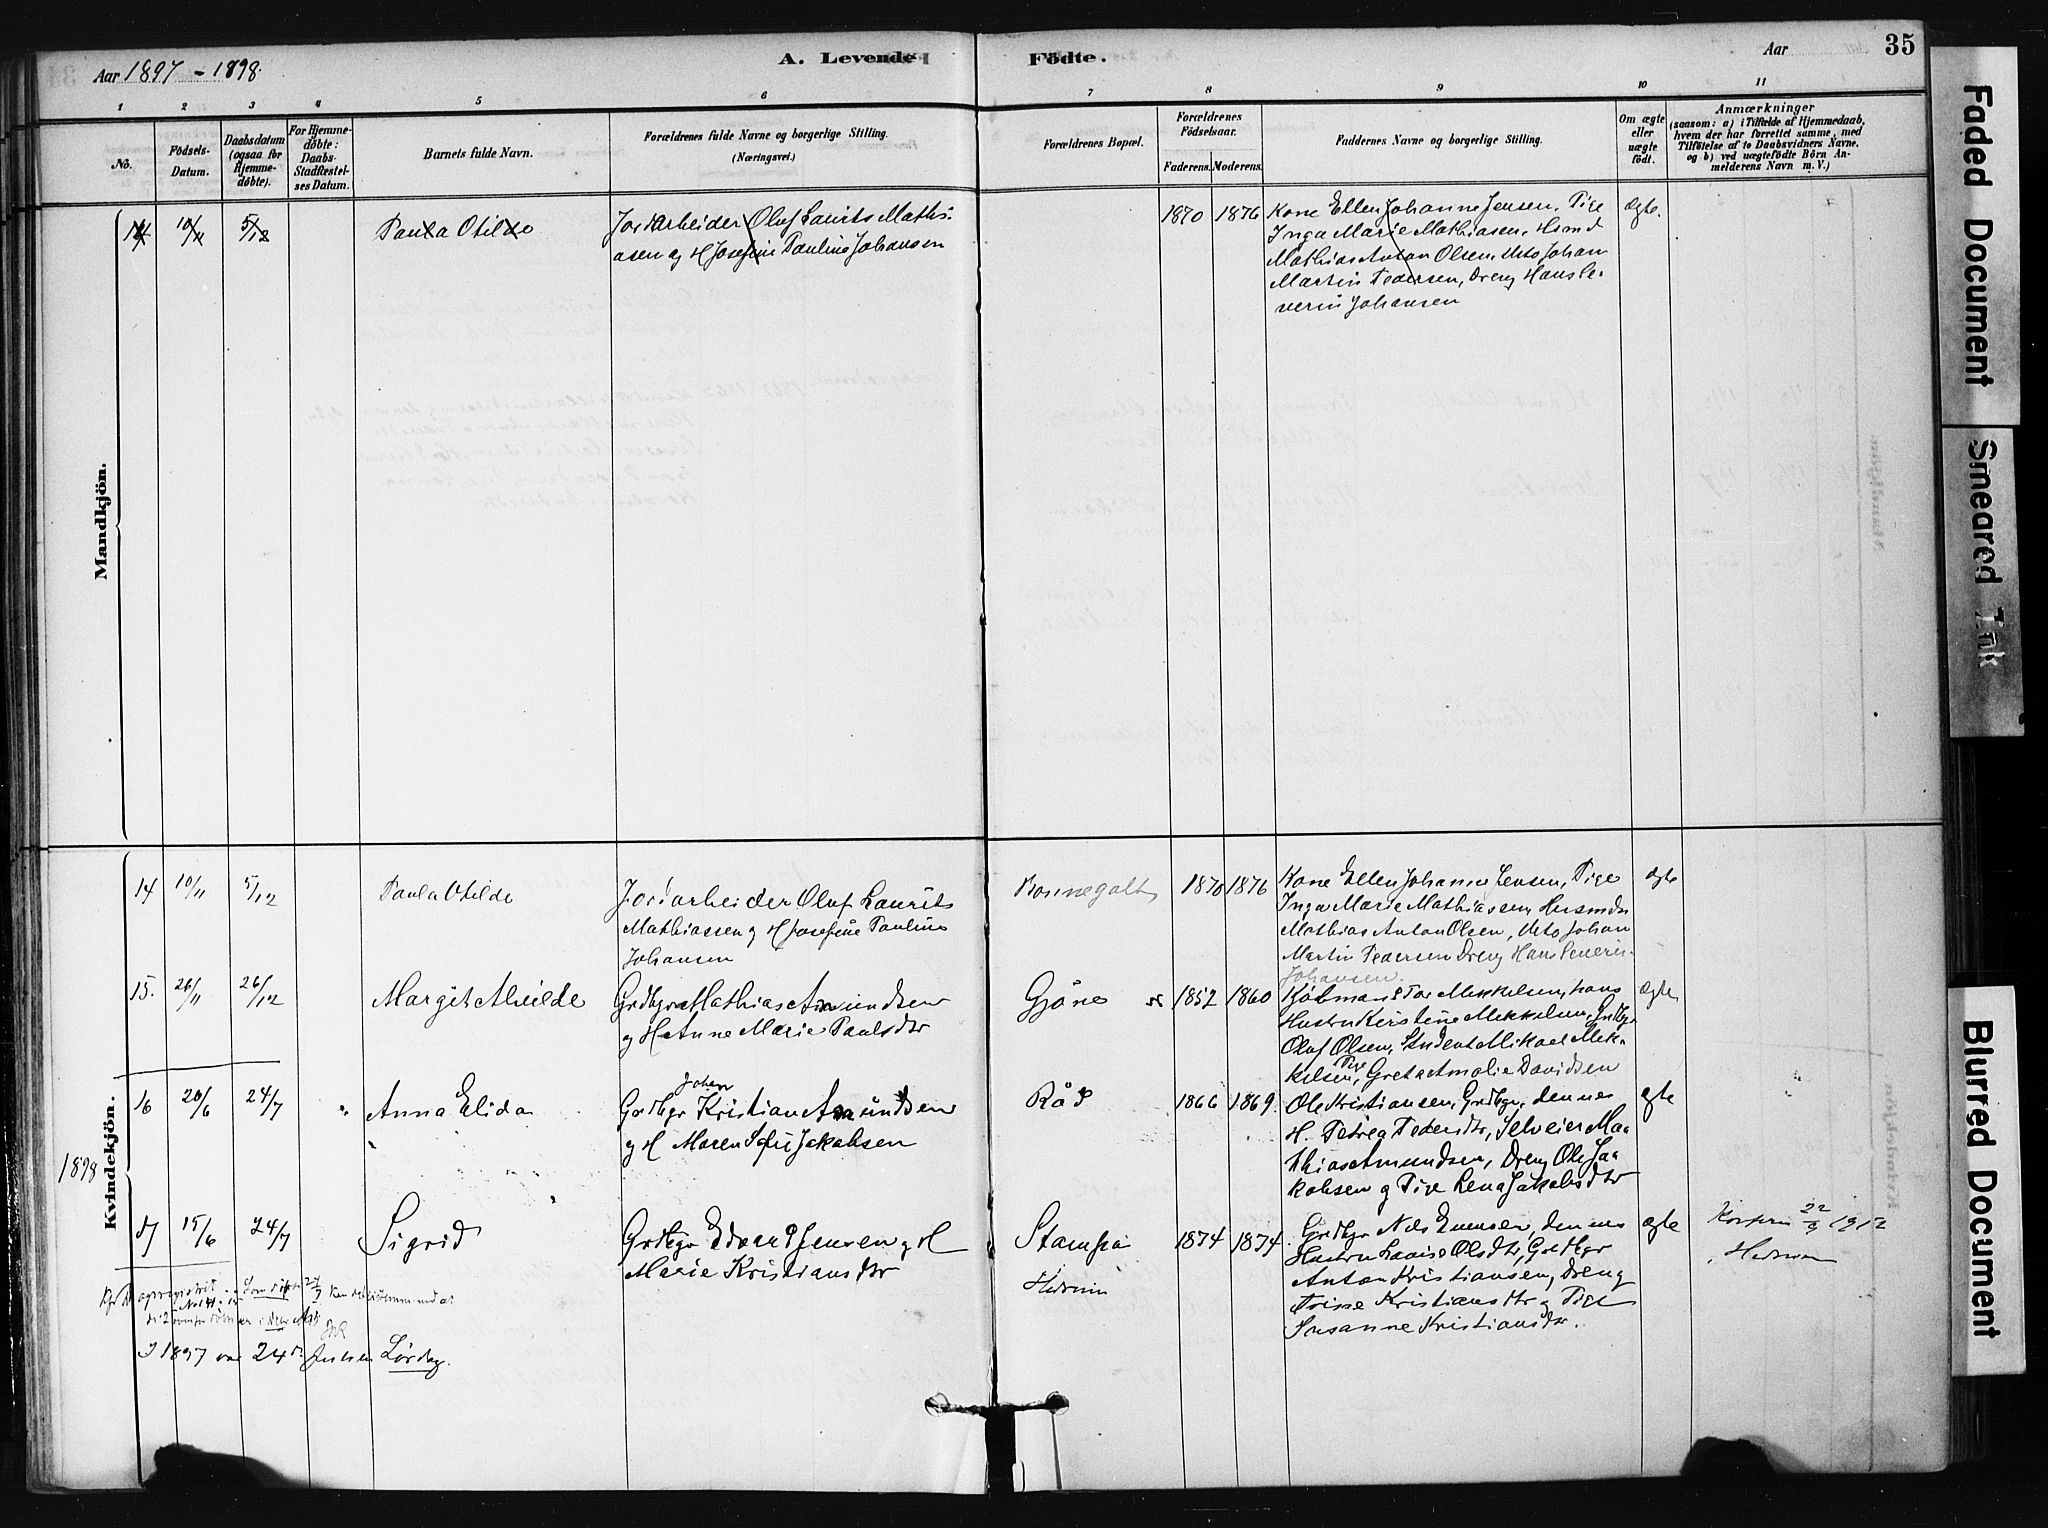 Aar 1897-1898.
A. Levende
Födte.
Aar
35
1 2 3 4 5 6 7 8 9 10 11
No.
Födsels-
Datum.
Daabsdatum
(ogsaa for
Hjemme-
döbte).
For Hjemme-
döbte:
Daabs-
Stadfæstel-
ses Datum.
Barnets fulde Navn.
Forældrenes fulde Navne og borgerlige Stilling.
(Næringsvei.)
Forældrenes Bopæl.
Forældrenes
Födselsaar.
Faderens. Moderens.
Faddernes Navne og borgerlige Stilling.
Om ægte
eller
uægte
födt.
Anmærkninger
(saasom: a) i Tilfælde af Hjemmedaab,
hvem der har forrettet samme, med
Tilföielse af to Daabsvidners Navne,
og b) ved uægtefödte Börn An-
melderens Navn m. V.)
Mandkjön.
14 10/11 5/12 Paula Otilde
Jordarbeider Oluf Laurits Mathi-
asen og H Josefine Pauline Johansen
1870 1876
Kone Ellen Johanne Jensen, Pige
Inga Marie Mathiasen, Hsmd
Mathias Anton Olsen, Mto Johan
Martin Pedersen, Dreng Hans Se-
verin Johansen
Ægte.
Kvindekjön.
14 10/11 5/12 Paula Otilde
Jordarbeider Oluf Laurits
Mathiassen og H Josefine Pauline
Johansen
Bonnegolt 1870 1876
Kone Ellen Johanne Jensen, Pige
Inga Marie Mathiassen, Husmd
Mathias Anton Olsen, Mto Johan
Martin Pedersen Dreng Hans Severin
Johansen.
ægte
15. 26/11 26/12 Margit Alvilde
Grdbgr Mathias Amundsen
og H Anne Marie Paulsdtr
Gjöne 1857 1860
Kjöbmand Tor Mekkelsen, hans
Hustru Kirstine Mekkelsen, Grdbgr
Oluf Olsen, Student Mikael Mek-
kelsen, Pige Greta Amalie Davidsen
Ægte
1898
16 20/6 24/7 " Anna Elida
Grdbgr Johan Kristian Amundsen
og H Maren Sofie Jakobsen
Råd 1866 1869.
Ole Kristiansen, Grdbgr, dennes
H. Petrea Pedersdtr, Selveier Ma-
thias Amundsen, Dreng Ole Ja-
kobsen og Pige Lena Jakobsdtr
Ægte
17 15/6 24/7 Sigrid
Grdbgr Edvard Jensen og H
Marie Kristiansdtr
Stampa
Hedrum
1874 1874
Grdbgr Nils Evensen, dennes
Hustru Lovise Olsdtr, Grdbgr
Anton Kristiansen, Dreng
Trine Kristiansdtr og Pige
Susanne Kristiansdtr.
ægte
22/9 1912
Hedrum
I 1897 var 24de Juli en Lørdag.
Faded Document
Smeared Ink
Blurred Document